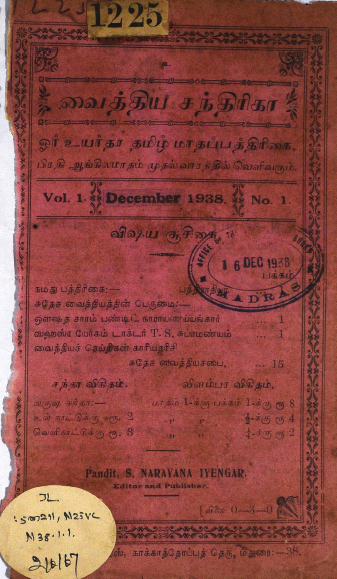 1225
வைத்திய சந்திரிகா
ஓர் உயர்தர தமிழ் மாதப்பத்திரிகை,
பிரதி ஆங்கிலமாதம் முதல் வாரத்தில் வெளிவரும்.
Vol. 1. December 1938. No. 1.
விஷய சூசிகை.
16 DEC 1938
பக்கம்
MADRAS
நமது பத்திரிகை:—
சுதேச வைத்தியத்தின் பெருமை:—
ஔஷத சாரம் பண்டிட் நாராயணய்யங்கார் ... 1
யோகம் டாக்டர் T. S. சுப்ரமண்யம் ... 1
வைத்தியச் செய்திகள் காரியதரிசி
சுதேச வைத்தியசபை, ... 15
சந்தா விகிதம். விளம்பர விகிதம்.
வருஷ சந்தா:— பாகம் 1-க்கு பக்கம் 1-க்கு ரூ 8
உள் நாட்டுக்கு ரூ. 2 " " ½-க்கு ரூ 4
வெளிநாட்டுக்கு ரூ. 3 " " ¼-க்கு ரூ 2
Pandit. S. NARAYANA IYENGAR.
Editor and Publisher.
M38.1.1.
2/6/67
காக்காத்தோப்புத் தெரு, மதுரை:—38.